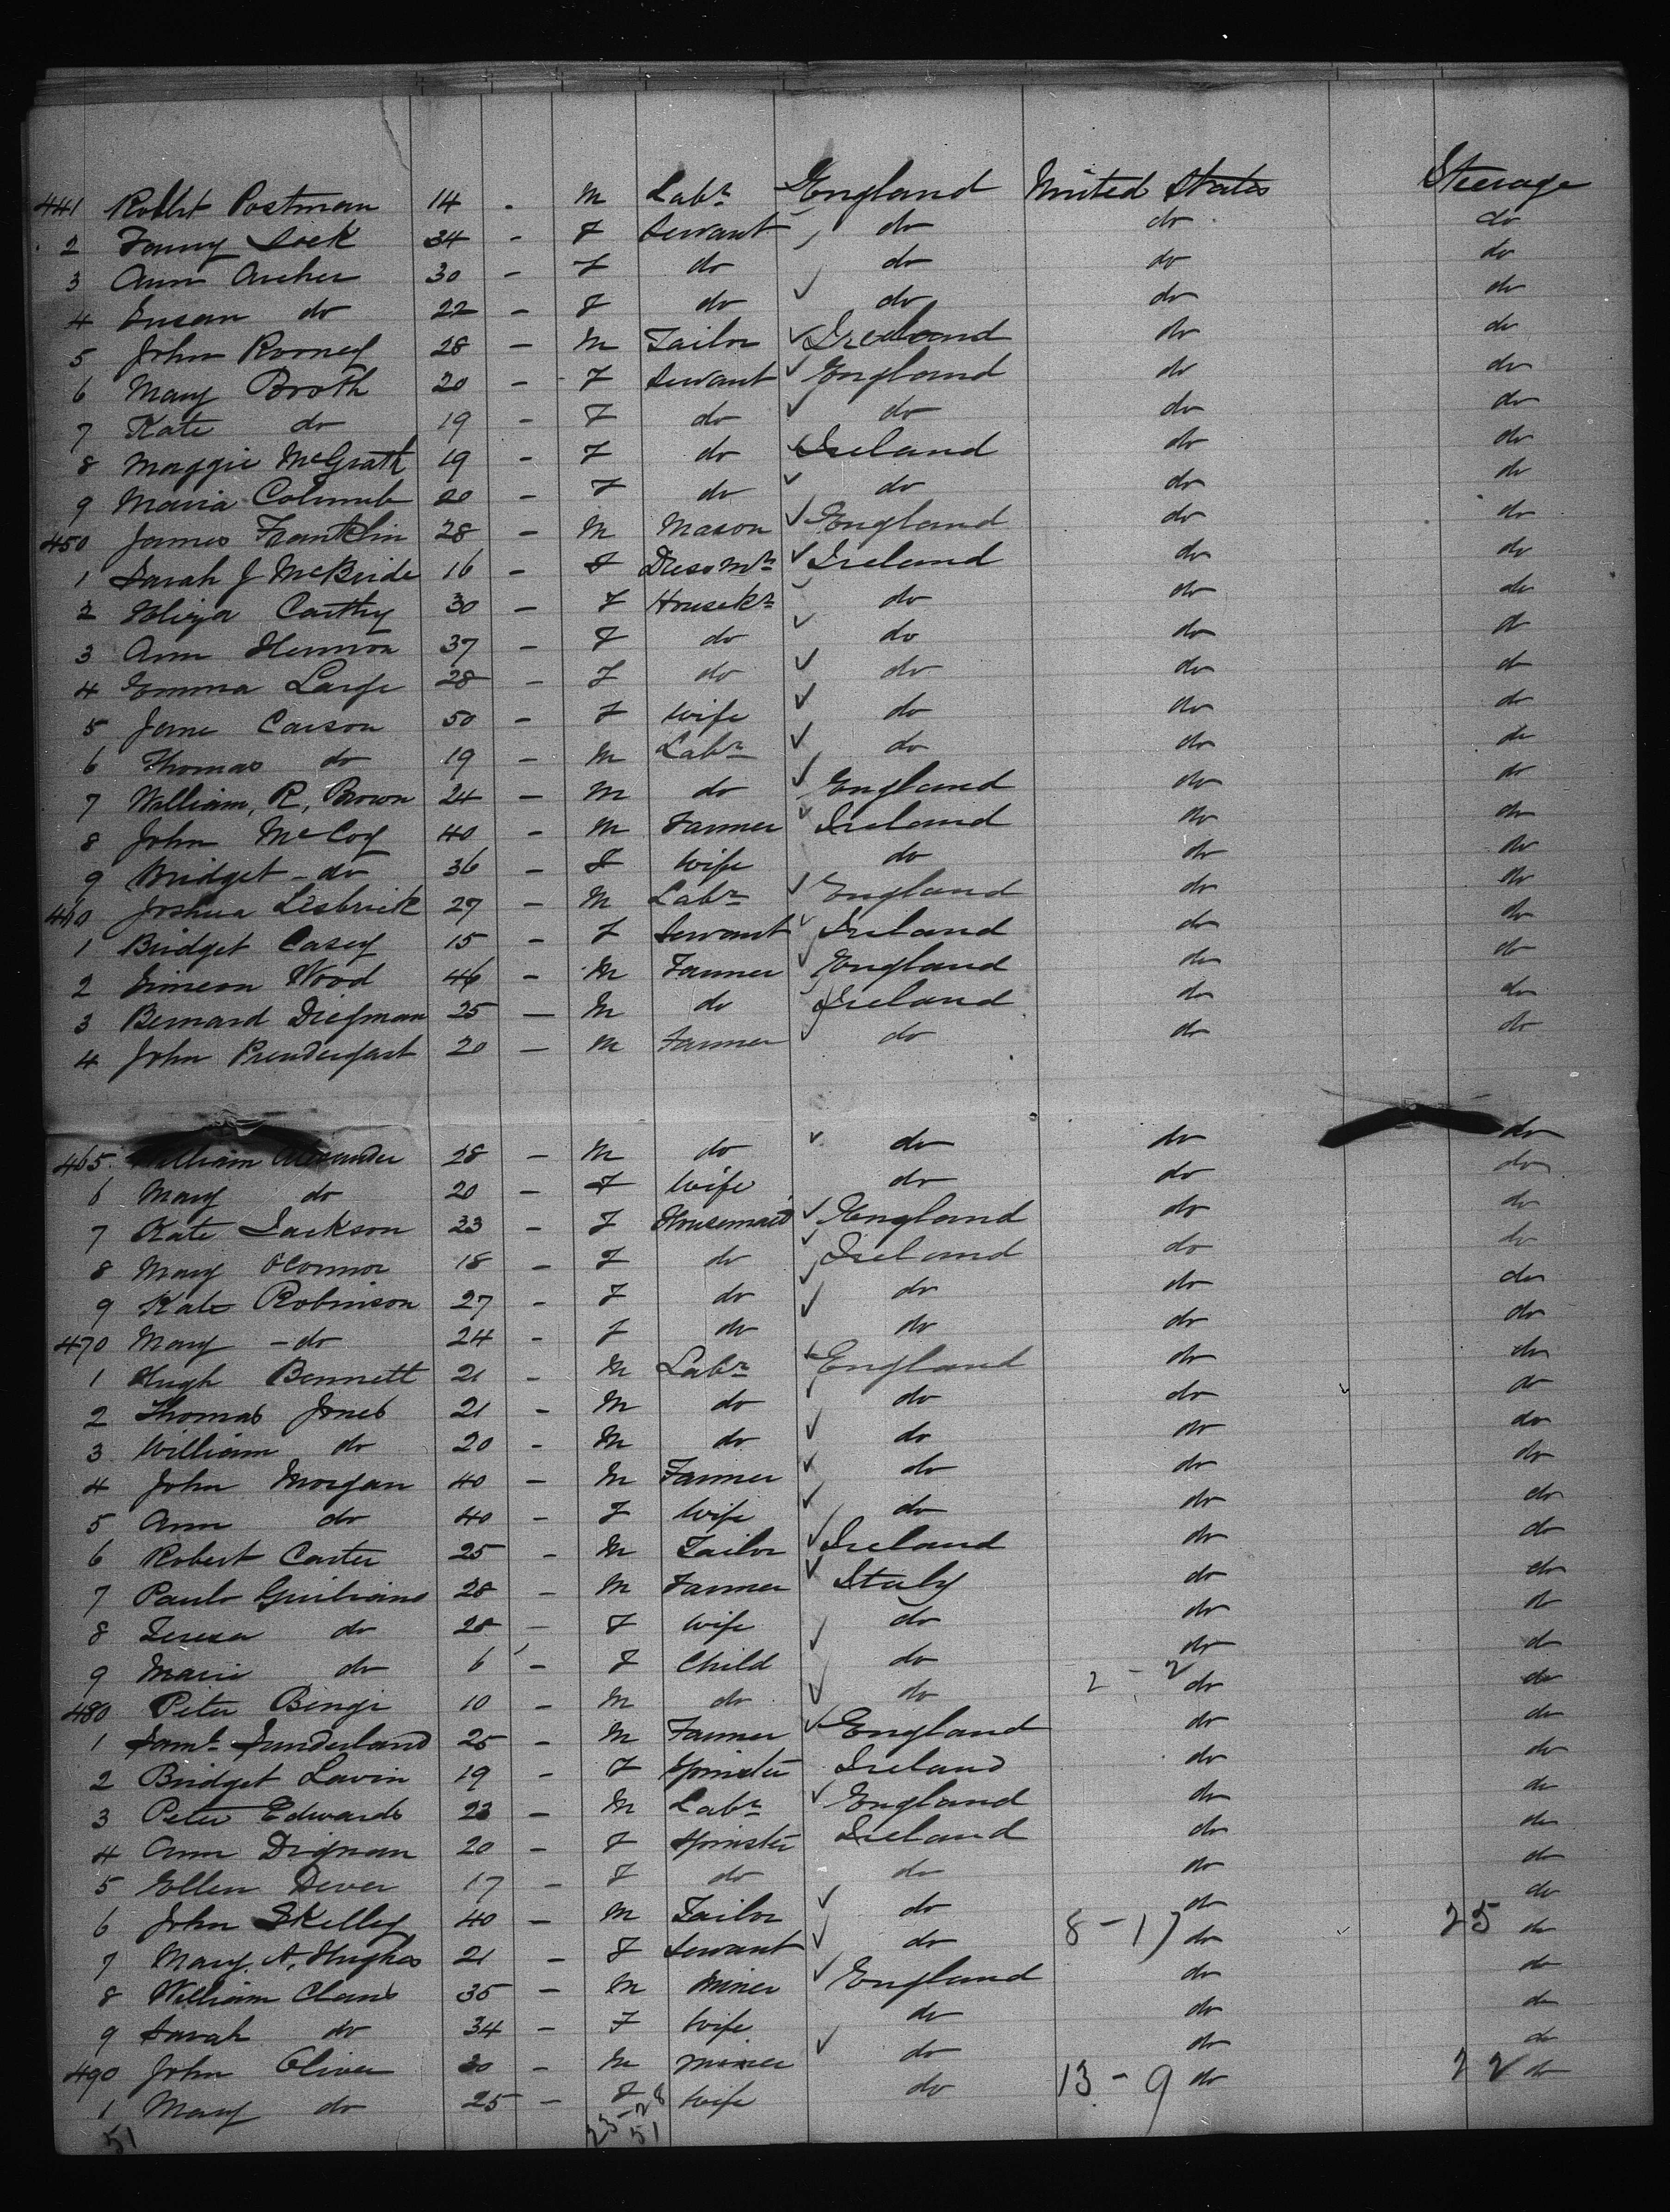 441 Robt Postman 14 - M Labr England United States Steerage
2 Fanny Sock 34 - F Servant do do do
3 Ann Archer 30 - F do do do do
4 Susan do 22 - F do do do do
5 John Rooney 28 - M Tailor Ireland do do
6 Mary Broth 20 - F Servant England do do
7 Kate do 19 - F do do do do
8 Maggie McGrath 19 - F do Ireland do do
9 Maria Columb 20 - F do do do do
450 James Franklin 28 - M Mason England do do
1 Sarah J McBride 16 - F Dressmr Ireland do do
2 Eliza Carthy 30 - F Housekr do do do
3 Ann Hernon 37 - F do do do do
4 Emma Large 28 - F do do do do
5 Jane Carson 50 - F Wife do do do
6 Thomas do 19 - M Labr do do do
7 William, R, Brown 24 - M do England do do
8 John McCoy 40 - M Farmer Ireland do do
9 Bridget - do 36 - F Wife do do do
460 Joshua Lisbrick 27 - M Labr England do do
1 Bridget Casey 15 - F Servant Ireland do do
2 Simeon Wood 46 - M Farmer England do do
3 Bernard Diegman 25 - M do Ireland do do
4 John Prendergast 20 - M Farmer do do do
465 William Alexander 28 - M do do do do
6 Mary do 20 - F Wife do do do
7 Kate Jackson 33 - F Housemaid England do do
8 Mary O'Connor 18 - F do Ireland do do
9 Kate Robinson 27 - F do do do do
470 Mary - do 24 - F do do do do
1 Hugh Bennett 21 - M Labr England do do
2 Thomas Jones 21 - M do do do do
3 William do 20 - M do do do do
4 John Morgan 40 - M Farmer do do do
5 Ann do 40 - F Wife do do do
6 Robert Carter 25 - M Tailor Ireland do do
7 Paulo Guiliano 28 - M Farmer Italy do do
8 Teresa do 28 - F Wife do do do
9 Marie do 6 - F Child do do do
480 Peter Bengi 10 - M do do 2 - 2 do do
1 Saml Sunderland 25 - M Farmer England do do
2 Bridget Lavin 19 - F Spinster Ireland do do
3 Peter Edwards 23 - M Labr England do do
4 Ann Dignan 20 - F Spinster Ireland do do
5 Ellen Dever 17 - F do do do do
6 John Skelly 40 - M Tailor do do do
7 Mary. A. Hughes 21 - F Servant do 8 - 17 do 25 do
8 William Clans 35 - M Miner England do do
9 Sarah do 34 - F Wife do do do
490 John Oliver 30 - M Miner do do do
1 Mary do 25 - F Wife do 13 - 9 do 22 do
51 23 - 28 51